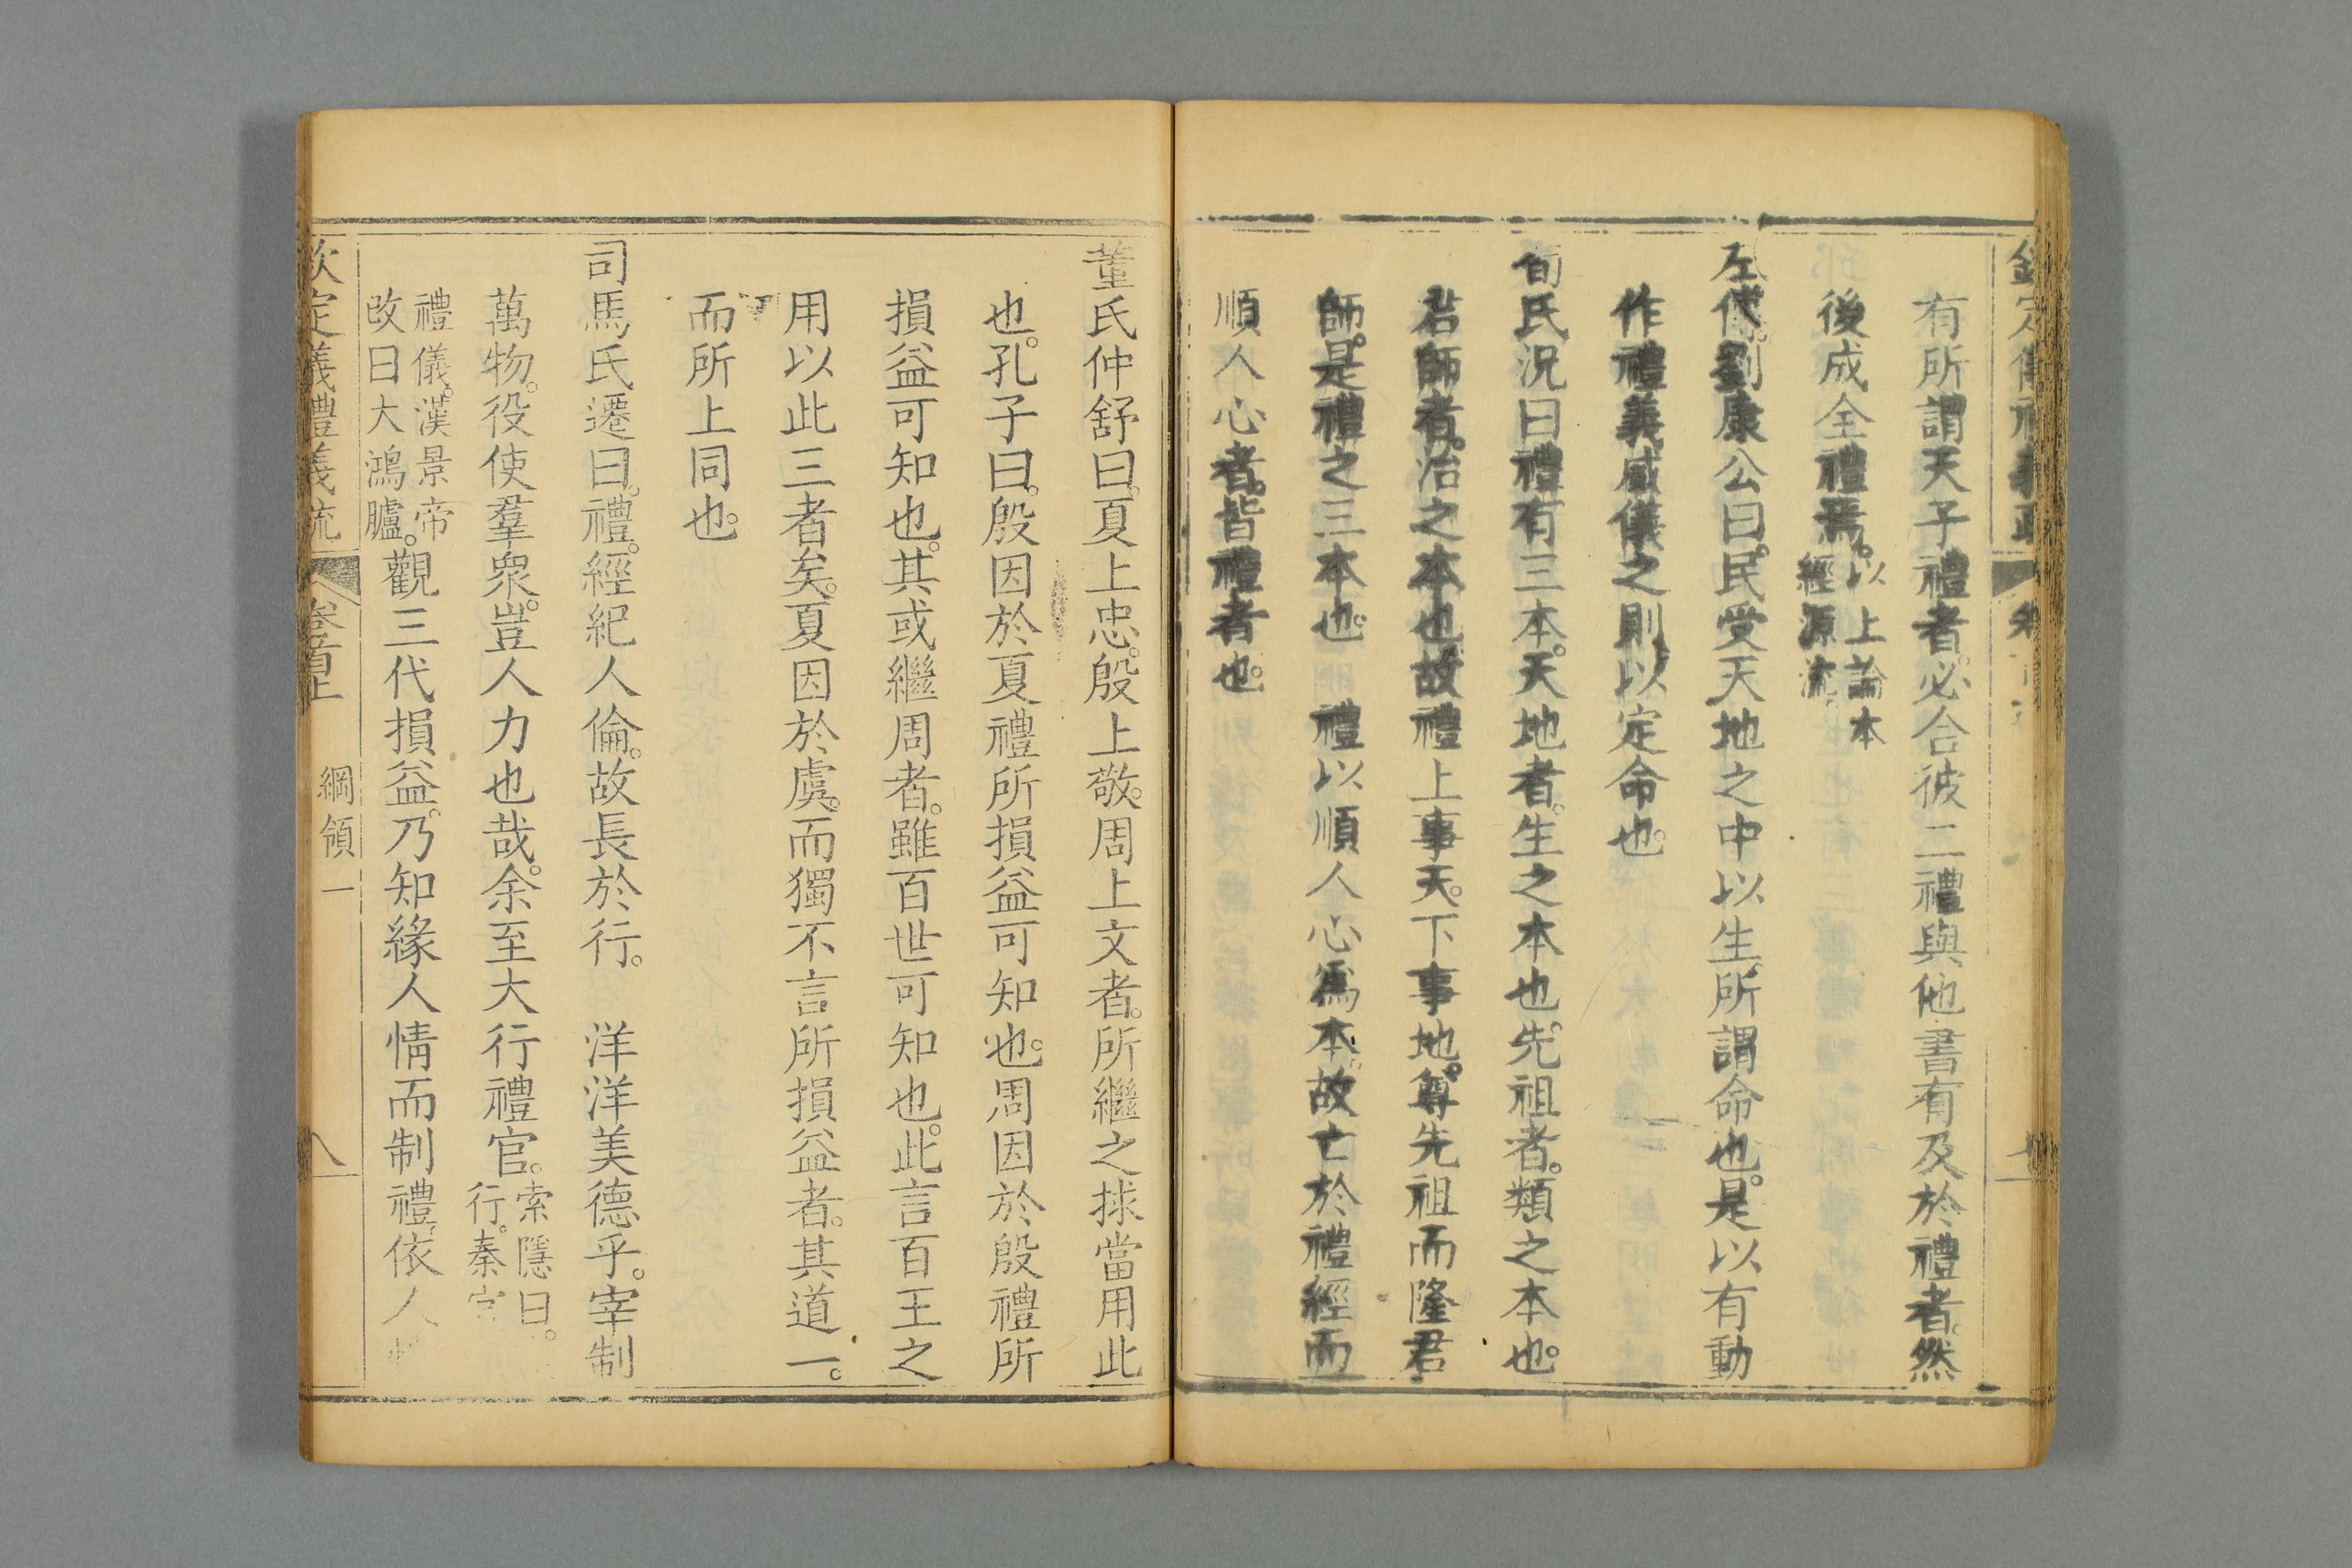 有所謂天子禮者。必合彼二禮與他書有及於禮者。然
後成全禮焉。以上論本經源流。
左傳。劉康公曰。民受天地之中以生。所謂命也。是以有動
作禮義威儀之則以定命也。
荀氏況曰禮有三本。天地者。生之本也。先祖者。類之本也。
君師者。治之本也。故禮上事天。下事地。尊先祖而隆君
師。是禮之三本也。 禮以順人心爲本。故亡於禮經而
順人心者。皆禮者也。
董氏仲舒曰。夏上忠。殷上敬。周上文者。所繼之捄當用此
也。孔子曰。殷因於夏禮所損益可知也。周因於殷禮所
損益可知也。其或繼周者。雖百世可知也。此言百王之
用以此三者矣。夏因於虞。而獨不言所損益者。其道一。
而所上同也。
司馬氏遷曰。禮。經紀人倫。故長於行。 洋洋美德乎。宰制
萬物。役使羣衆。豈人力也哉。余至大行禮官。索隱曰。行。秦官
禮儀。漢景帝改曰大鴻臚。觀三代損益。乃知緣人情而制禮。依人
欽定義禮義疏 卷首上 綱領一 八